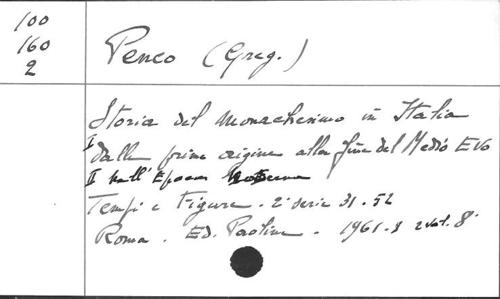 100
160
2
Penco (Greg.)
Storia del monachesimo in Italia
I dalle prime origine alla fine del Medio Evo
II nell'Epoca Moderna
Tempi e Figure. 2ª serie 31. 52
Roma. Ed. Paoline. 1961.8 2 vol. 8º